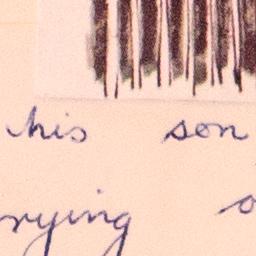 his son
rying